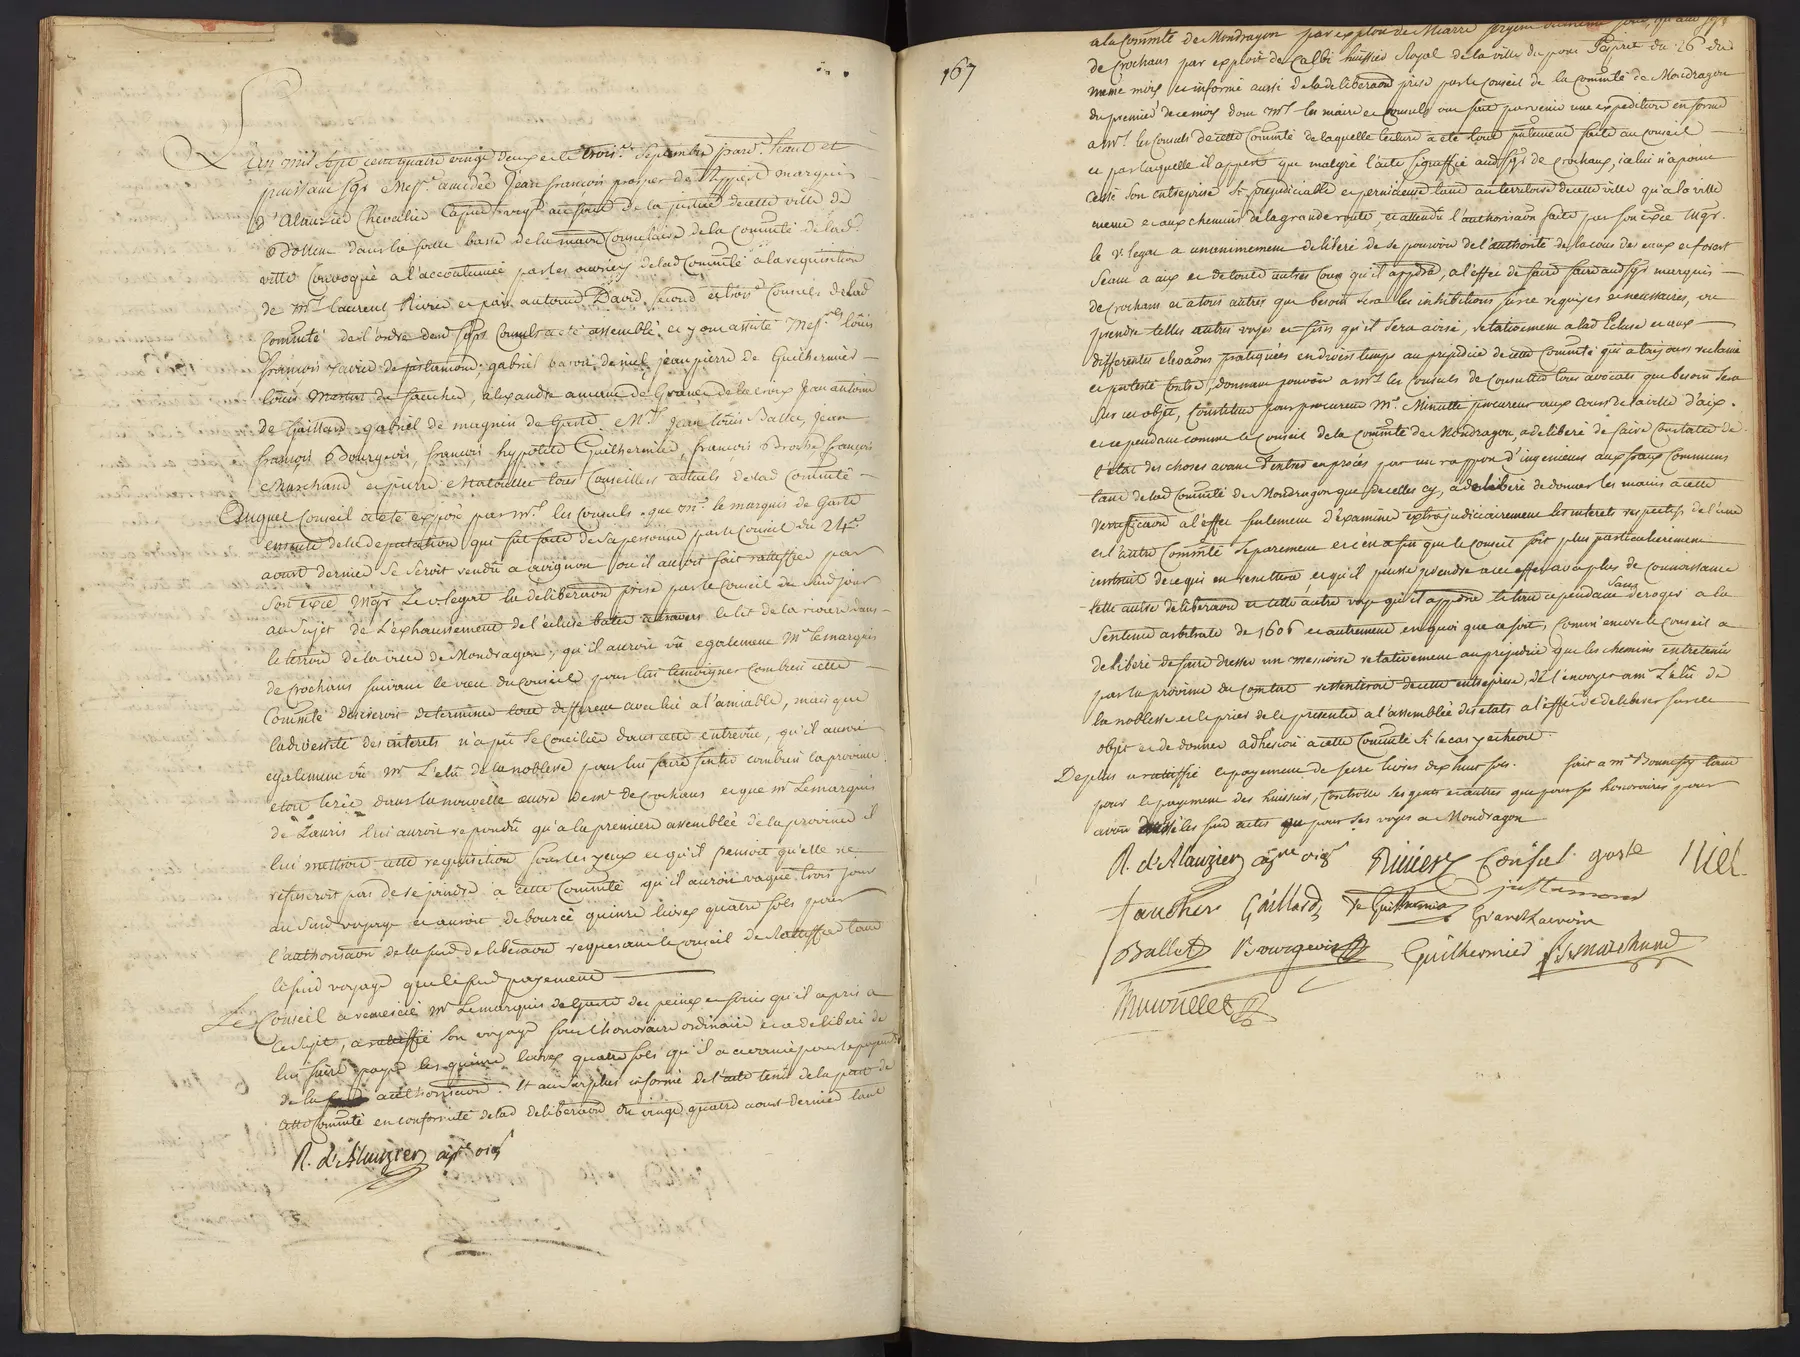 L'an mil sept cent quatre vingt deux et le trois.e Septembre pard.t haut et
puissant sgr Mess.e amedée Jean françois prosper de Rippert marquis
d'Alauzier Chevalier de la justice de cette ville de
Bollene dans la salle basse de la maison Consulaire de la Comm̃té de lad.e
ville Convoqué a l'accoutumée par les de lad Comm̃té a la requisition
de M.rs laurent Rivier et pais antoine David second et trois.e Consuls de lad
Comm̃té de l'ordre desd sgrs Consuls a été assemblé et y ont assisté Mess.rs louis
françois xavier de justamond, gabriel baron de niel, jean pierre de Guilhermier
louis de faucher, alexandre amant de Granet de la croix Jean antoine
de Gaillard gabriel de magnin de Gaste M.rs Jean louis Ballet, Jean
françois Bourgeois, françois hyppolite Guilhermier, françois françois
Marchand et pierre tous Conseillers actuels de lad Comm̃té
Auquel Conseil a été exposé par M.rs les Consuls que m.r le marquis de Gaste
ensuite de la deputation qui fut faite de sa personne par le Conseil du 24.e
aoust dernier se seroit rendu a avignon ou il auroit fait rattiffier par
Son exce Mgr Le v. legat la deliberaõn prise par le Conseil du susd jour
au sujet de l'exhaussement de l'écluse batie a travers le lit de la riviere dans
le terroir de la ville de Mondragon, qu'il auroit vû egalement M.r le marquis
de Crochans suivant le vœu du Conseil pour lui temoigner combien cette
Comm̃té desireroit determiner tout differend avec lui a l'amiable, mais que
la diversité des interets n'a pu se concilier dans cette entrevûe, qu'il auroit
egalement vû Mr L'elû de la noblesse pour lui faire sentir combien la province
etoit lezée dans la nouvelle œuvre de m.r de Crochans et que m.r Le marquis
de Lauris lui auroit repondû qu'a la premiere assemblée de la province il
lui mettroit cette requisition sous les yeux et qu'il pensoit qu'elle ne
refuseroit pas de se joindre a cette Comm̃té qu'il auroit vaqué trois jour
au susd voyage et auroit deboursé quinze livres quatre sols pour
l'authorisaõn de la susd deliberaõn requerant le Conseil de Rattiffier tant
le susd voyage que le susd payement
Le Conseil a remercié M.r Le marquis de Gaste des peines et soins qu'il a pris a
ce sujet, a rattiffié son voyage sous l'honoraire ordinaire et a deliberé de
lui faire payer les quinze livres quatre sols qu'il a avancé pour le payement
de la susd authorisaõn. Et au surplus informé de l'acte tenu de la part de
cette Comm̃té en conformité de lad deliberaõn du vingt quatre aoust dernier tant
R. d'Alauzier
167
a la Comm̃té de Mondragon par exploit de
de Crochans par exploit de Calbi huissier Royal de la ville du pont S.t Esprit du 26 du
même mois et informé aussi de la deliberaõn prise par le Conseil de la Comm̃té de Mondragon
du premier de ce mois dont M.rs les maire et Consuls ont fait parvenir une expediture en forme
a M.rs les Consuls de cette Comm̃té de laquelle lecture a été tout presentement faite au Conseil
et par laquelle il appert que malgré l'acte signiffié audsgr de Crochans, icelui n'a point
cessé son entreprise si prejudiciable et pernicieuse tant au territoire de cette ville qu'a la ville
meme et aux chemins de la grande route, et attendu l'authorisaõn faite par son exce Mgr.
le v. legat a unanimement deliberé de se pourvoir de l'authorité de la cour des eaux et forest
Seant a aix et de toutes autres Cour qu'il appdra, a l'effet de faire faire aud sgr marquis
de Crochans et a tous autres que besoin sera les inhibitions sur ce requises et necessaires, ou
prendre telles autres voyes et fins qu'il sera avisé, relativement a lad Ecluse et aux
differentes elevaõns pratiquées en divers temps au prejudice de cette Comm̃té qui a toujours reclamé
et protesté contre, donnant pouvoir a M.rs les Consuls de Consulter tous avocats que besoin sera
sur cet objet, Constitué pour procureur M.e Minutte procureur aux cours de la ville d'aix.
et cependant comme le Conseil de la Comm̃té de Mondragon, a deliberé de faire constater de
l'etat des choses avant d'entrer en procés par un rapport d'ingenieurs aux fraix communs
tant de lad Comm̃té de Mondragon que de celles cy, a deliberé de donner les mains a cette
veriffication a l'effet seulement d'examiner extrajudiciairement les interets respectifs de l'une
et l'autre Comm̃té separement et c'en afin que le Conseil soit plus particulierement
instruit de ce qui en resultera et qu'il puisse prendre a cet effet avec plus de connoissance
telle autre deliberaõn et telle autre voye qu'il appdra le tout cependant sans deroger a la
Sentence arbitrale de 1606 et autrement en quoi que ce soit, Comm'encore le Conseil a
deliberé de faire dresser un memoire relativement au prejudice que les chemins entretenus
par la province du comtat ressentiroit de cette entreprise, de l'envoyer a m.r L'elû de
la noblesse et le prier de le presenter a l'assemblée des etats a l'effet de deliberer sur cet
objet et de donner adhesion a cette Comm̃té si le cas y echeoit.
De plus a rattiffié le payement de seize livres dix huit sols. fait a m.e Bonnefoy tant
pour le payement des huissiers, Controlle ses gents et autres que pour ses honoraires pour
avoir dressé les susd actes que pour ses voyes a Mondragon
R. d'Alauzier Rivier Consul gaste Niel
justamond
faucher Gaillard de Guilhermier Granet Lacroix
Ballet Bourgeois Guilhermier Marchand